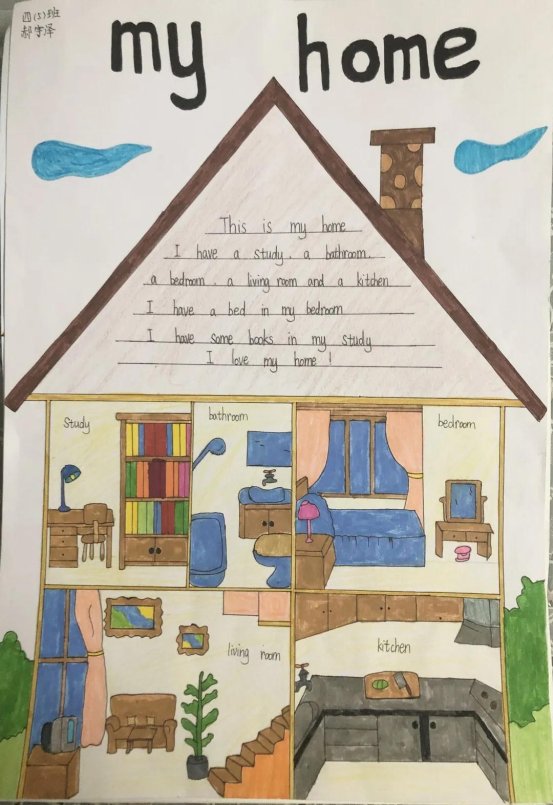 四(5)班
郝宇泽
my home
This is my home
I have a study . a bathroom .
a bedroom . a living room and a kitchen
I have a bed in my bedroom
I have some books in my study
I love my home !
Study
bathroom
bedroom
living room
kitchen